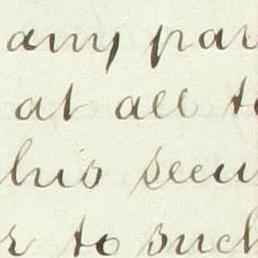 any par
at all to
his secu
r to such